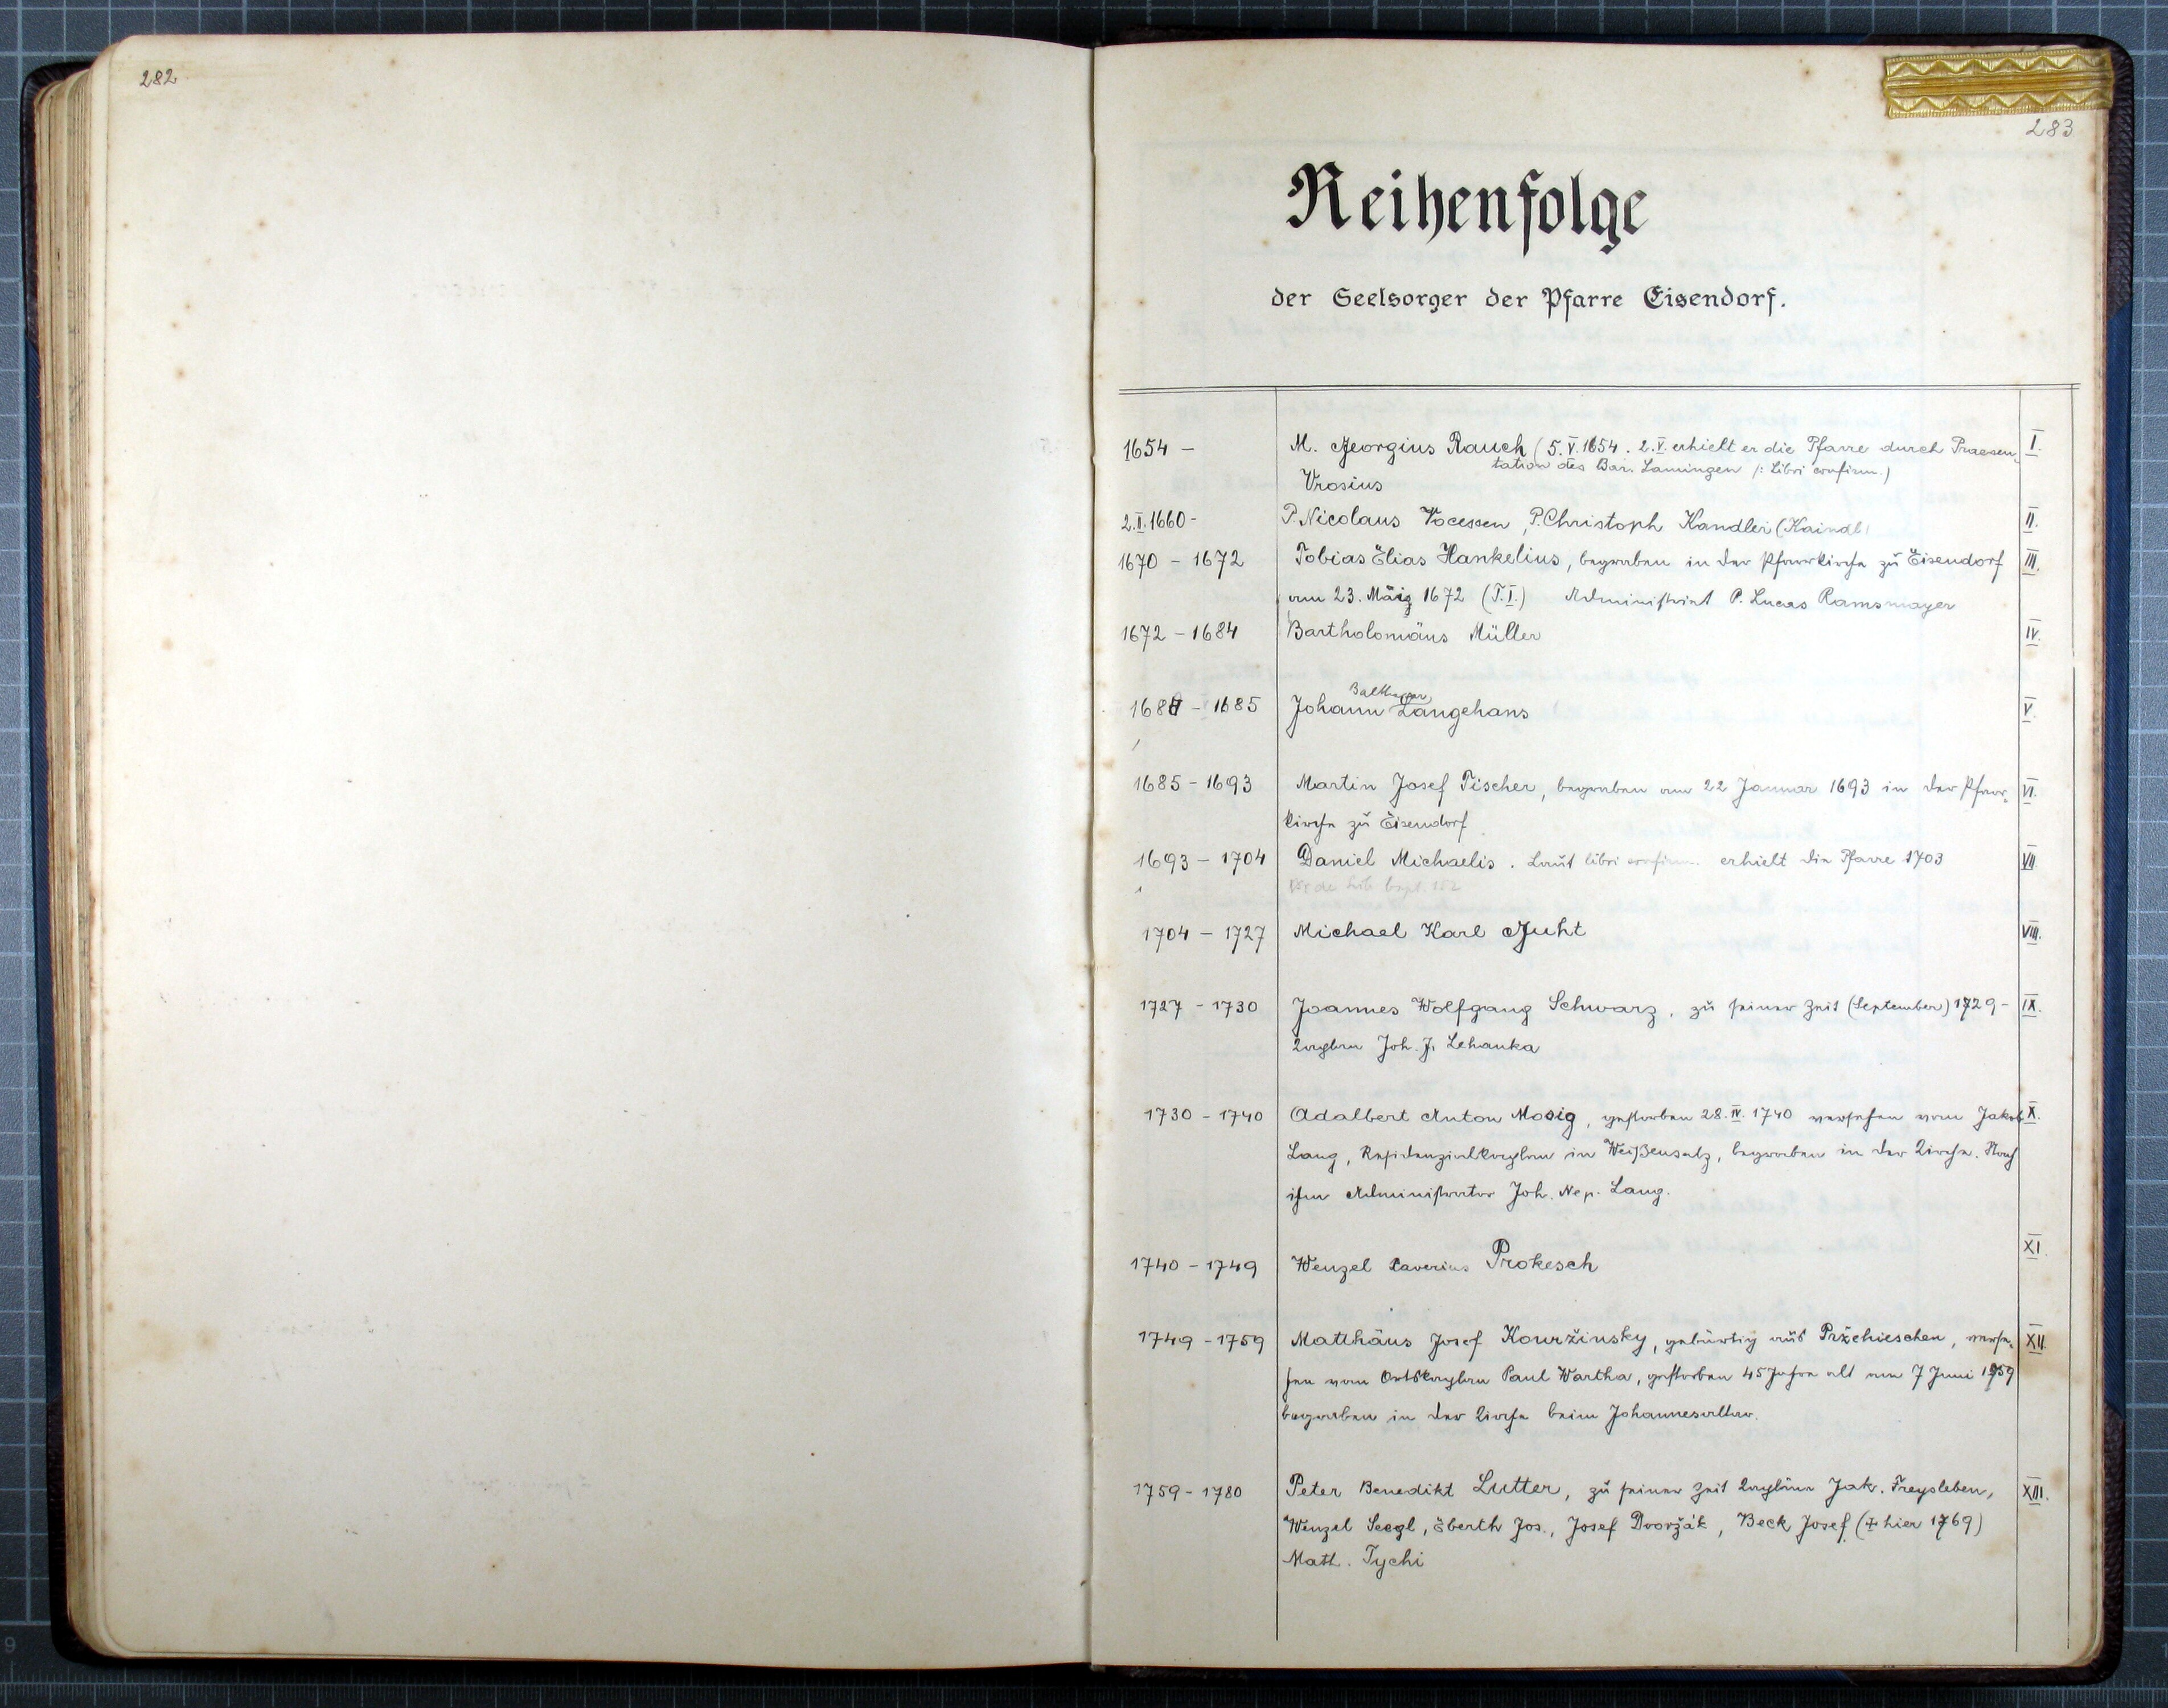 282
283
Reihenfolge
der Seelsorger der Pfarre Eisendorf.
1654 - M. Georgius Rauch (5.V.1654. 2.V. erhielt er die Pfarre durch Praesen- I.
tation des Bar. Lamingen /: Libri confirm.)
Urosius
2.II.1660- P. Nicolaus Vocessen, P. Christoph Kandler (Kaindl) II.
1670 - 1672 Tobias Elias Hankelius, begraben in der Pfarrkirche zu Eisendorf III.
am 23. März 1672 (T.I.) Administriert P. Lucas Ramsmayer
1672 - 1684 Bartholomäus Müller IV.
Balthasar
1684 - 1685 Johann Langehans V.
1685 - 1693 Martin Josef Tischer, begraben am 22 Januar 1693 in der Pfarr- VI.
kirche zu Eisendorf
1693 - 1704 Daniel Michaelis. Laut libri confirm. erhielt die Pfarre 1703 VII.
Lib. bapt. 152
1704 - 1727 Michael Karl Guht VIII.
1727 - 1730 Joannes Wolfgang Schwarz, zu seiner Zeit (September) 1729 - IX.
Kaplan Joh. J. Lehanka
1730 - 1740 Adalbert Anton Mosig, gestorben 28.IV. 1740 versehen vom Jakob X.
Lang, Residenzialkaplan in Weißensulz, begraben in der Kirche. Nach
ihm Administrator Joh. Nep. Lang.
1740 - 1749 Wenzel Xaverius Prokesch XI.
1749 - 1759 Matthäus Josef Kouržinsky, gebürtig aus Pržchieschen, verse- XII.
hen vom Ortskaplan Paul Wartha, gestorben 45 Jahre alt am 7 Juni 1759
begraben in der Kirche beim Johannesaltar.
1759 - 1780 Peter Benedikt Lutter, zu seiner Zeit Kapläne Jak. Freysleben, XIII.
Wenzel Seegl, Eberth Jos., Josef Dvoržák, Beck Josef (+ hier 1769)
Math. Tychi